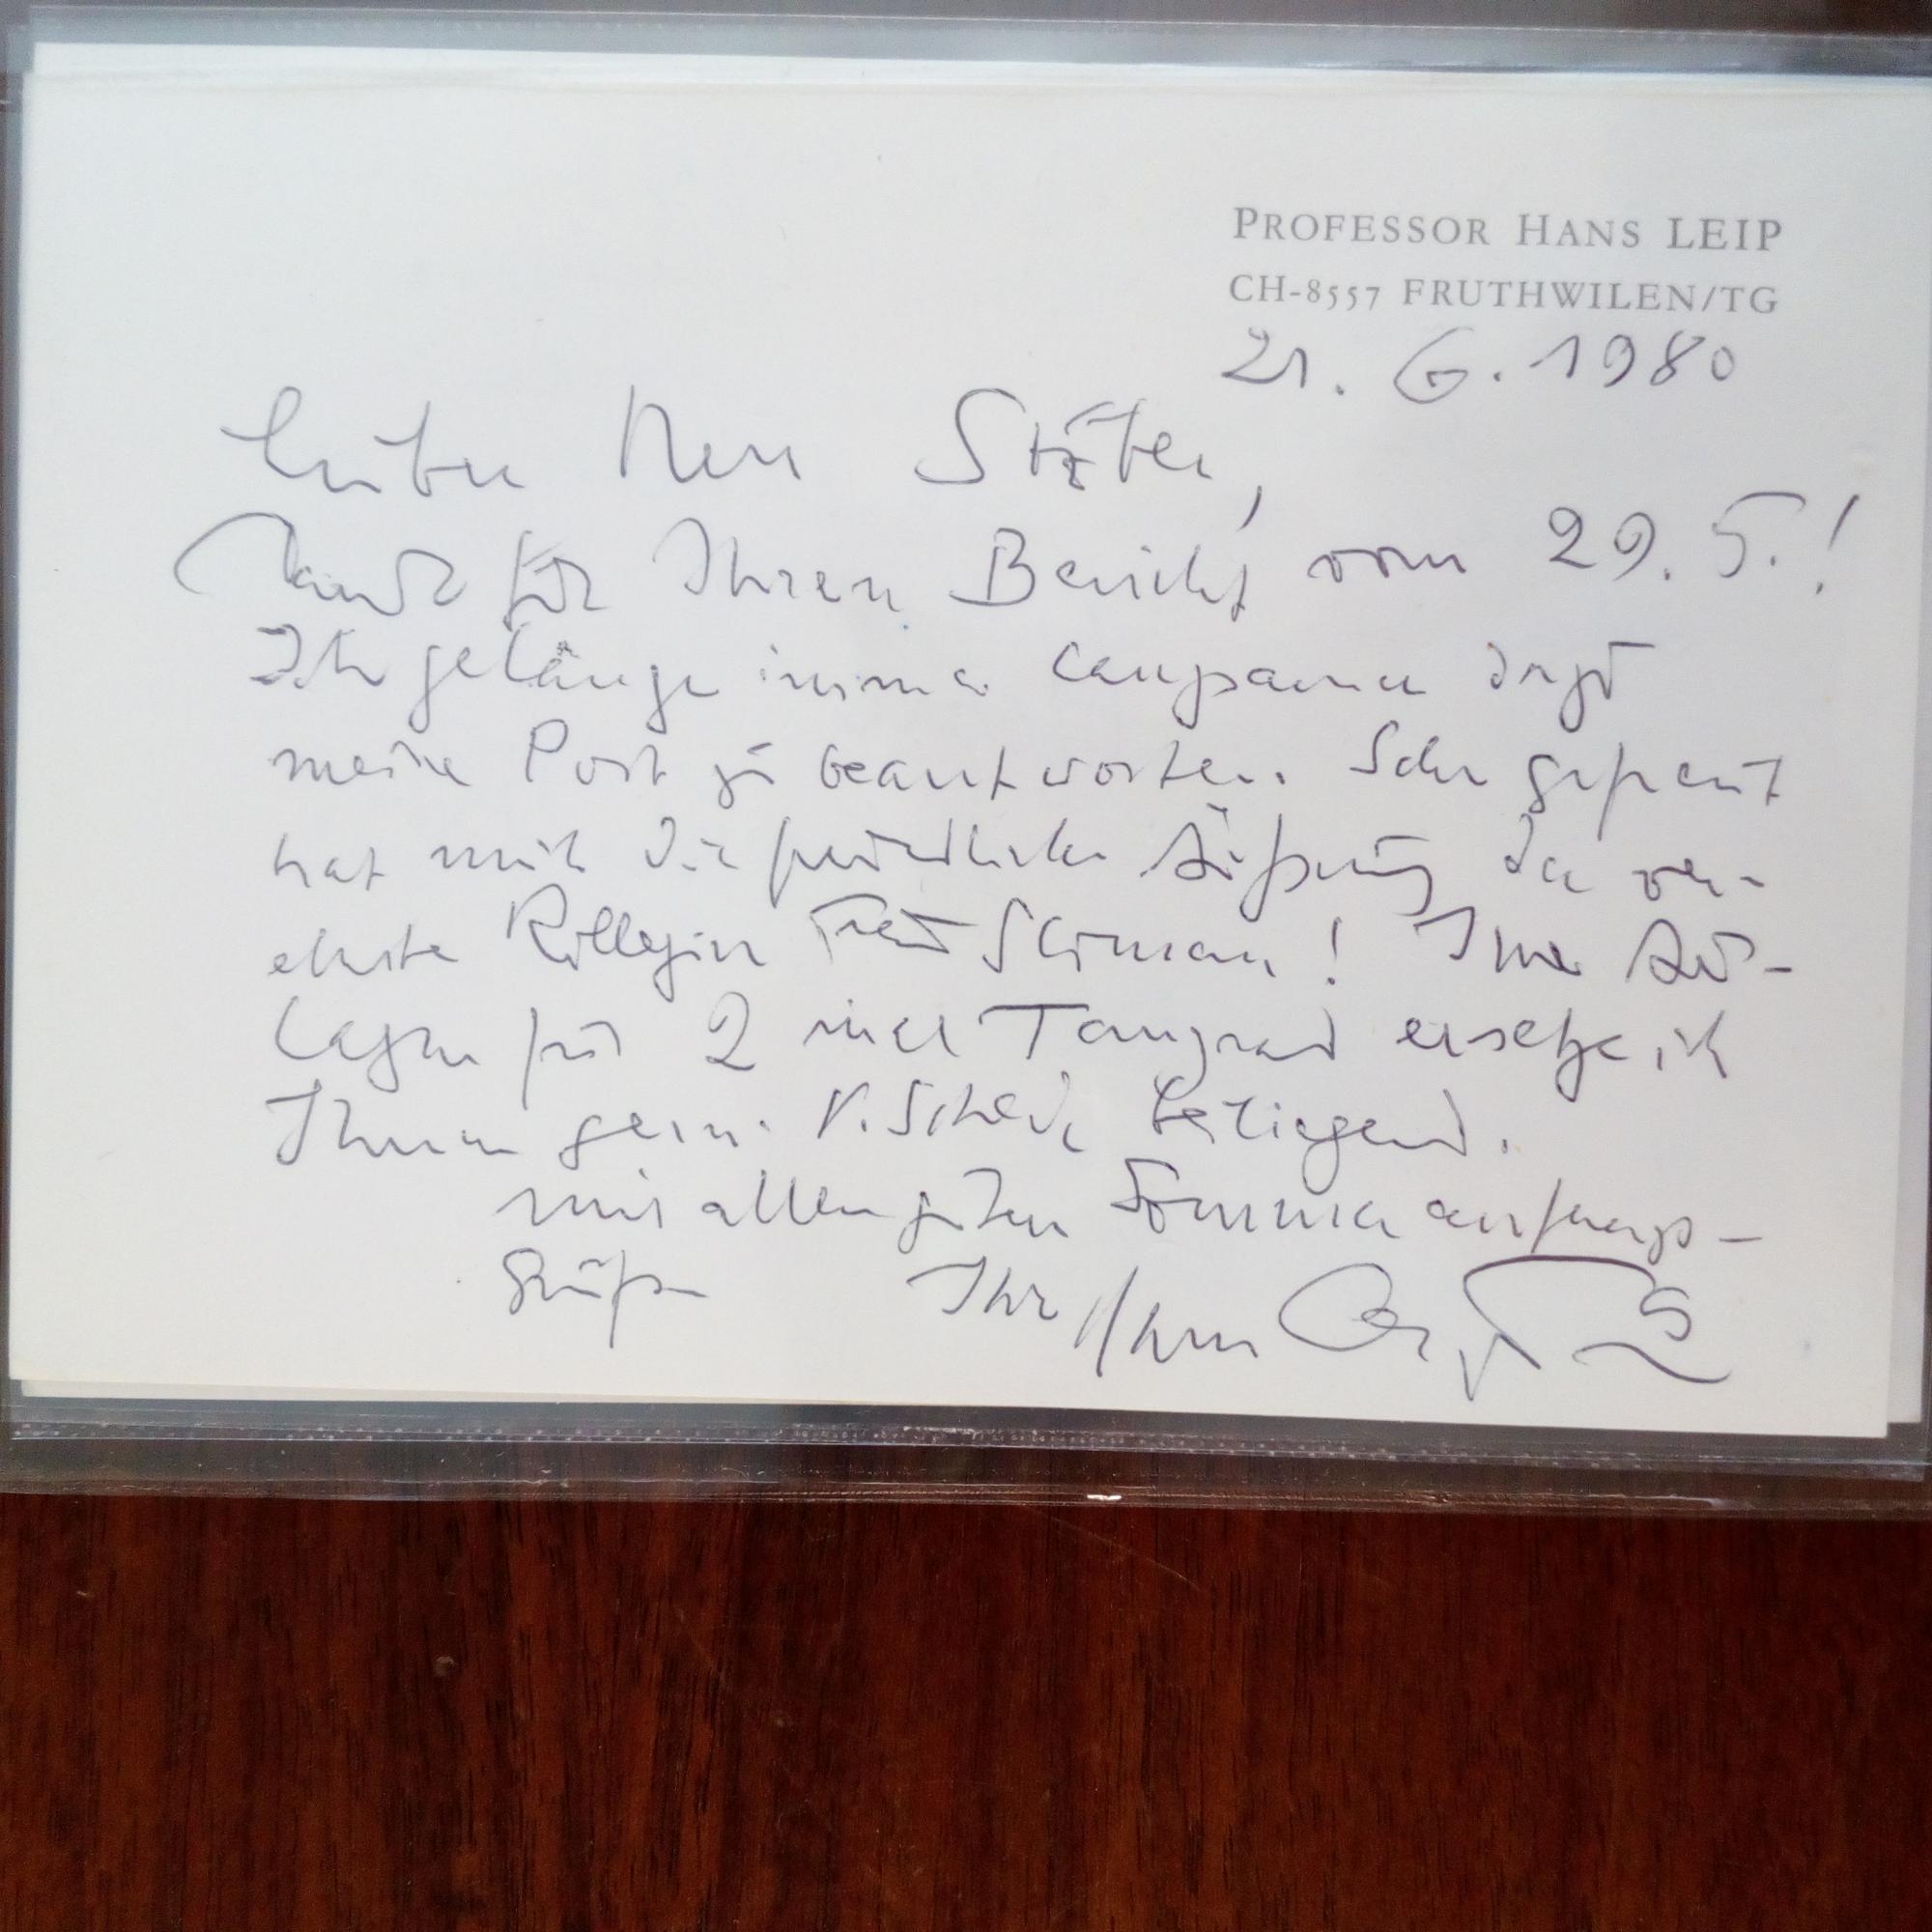 PROFESSOR HANS LEIP
CH-8557 FRUTHWILEN/TG
21. 6. 1980
Lieber Herr Stäbe,
Dank für Ihren Bericht vom 29. 5.!
Ich gelange immer langsamer dazu
meine Post zu beantworten. Sehr gefreut
hat mich die freundliche Äußerung der ver-
ehrten Kollegin Frau! Ihre Aus-
lagen für 2 mal ersetze ich
Ihnen gern. V. Scheck beiliegend.
mit allen guten Sommeranfangs-
Grüßen Ihr Hans Leip